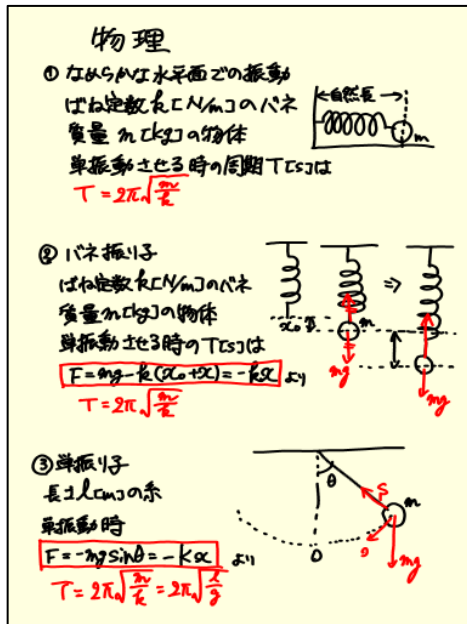 物理
① なめらかな水平面での振動
ばね定数 k[N/m]のバネ
質量 m[kg]の物体
単振動させる時の周期T[s]は
T = 2π√(m/k)
自然長
m
② バネ振り子
ばね定数 k[N/m]のバネ
質量 m[kg]の物体
単振動させる時のT[s]は
F = mg - k(x₀+x) = -kx より
T = 2π√(m/k)
x₀
m
mg
mg
③ 単振り子
長さ l[m]の糸
単振動時
F = -mg sinθ = -kx より
T = 2π√(m/k) = 2π√(l/g)
θ
S
m
O
mg